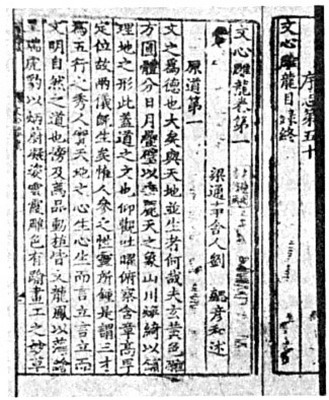 序志第五十
文心雕龍目錄終
文心雕龍卷第一
梁通事舍人劉勰彥和述
原道第一
文之爲德也大矣與天地並生者何哉夫玄黃色雜
方圓體分日月疊璧以垂麗天之象山川煥綺以鋪
理地之形此蓋道之文也仰觀吐曜俯察含章高卑
定位故兩儀既生矣惟人參之性靈所鍾是謂三才
爲五行之秀人實天地之心生心生而言立言立而
文明自然之道也傍及萬品動植皆文龍鳳以藻繪
呈瑞虎豹以炳蔚凝姿雲霞雕色有踰畫工之妙草